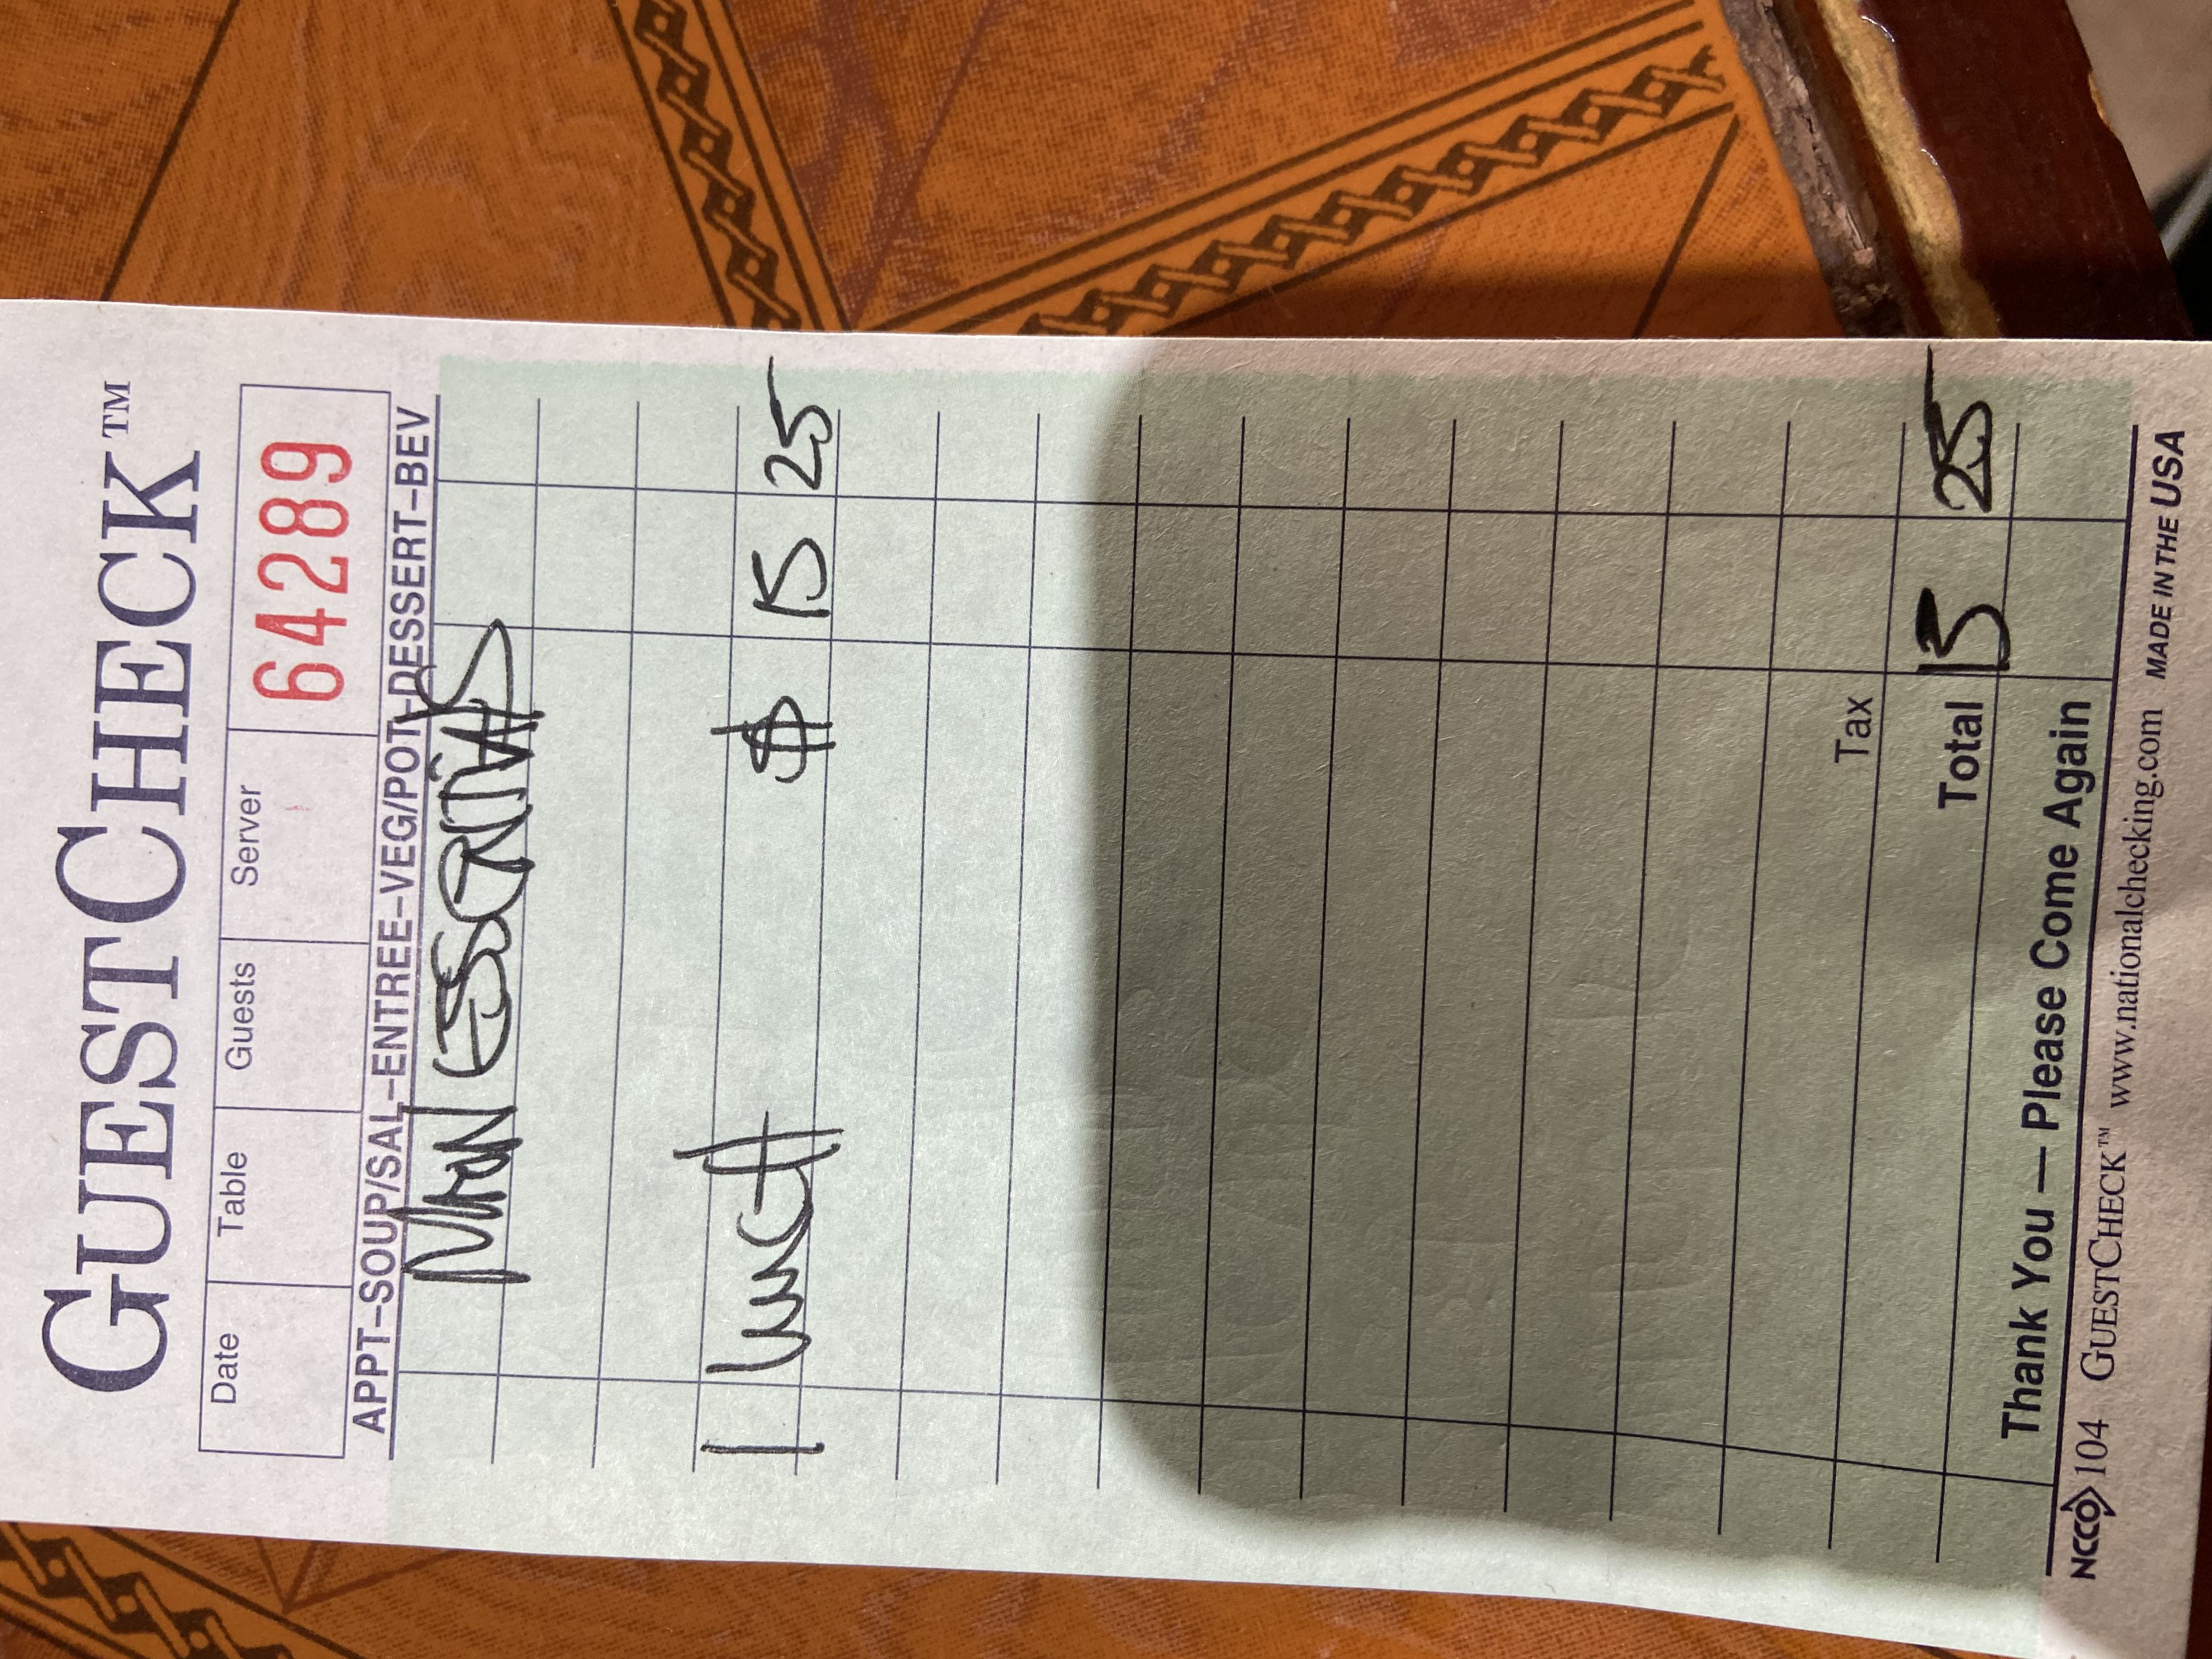 GUESTCHECK™
Date Table Guests Server 64289
APPT–SOUP/SAL–ENTREE–VEG/POT–DESSERT–BEV
ESSENTIALS
1 lunch $ 15 25
Tax
Total 15 25
Thank You — Please Come Again
NCCO 104 GUESTCHECK™ www.nationalchecking.com MADE IN THE USA